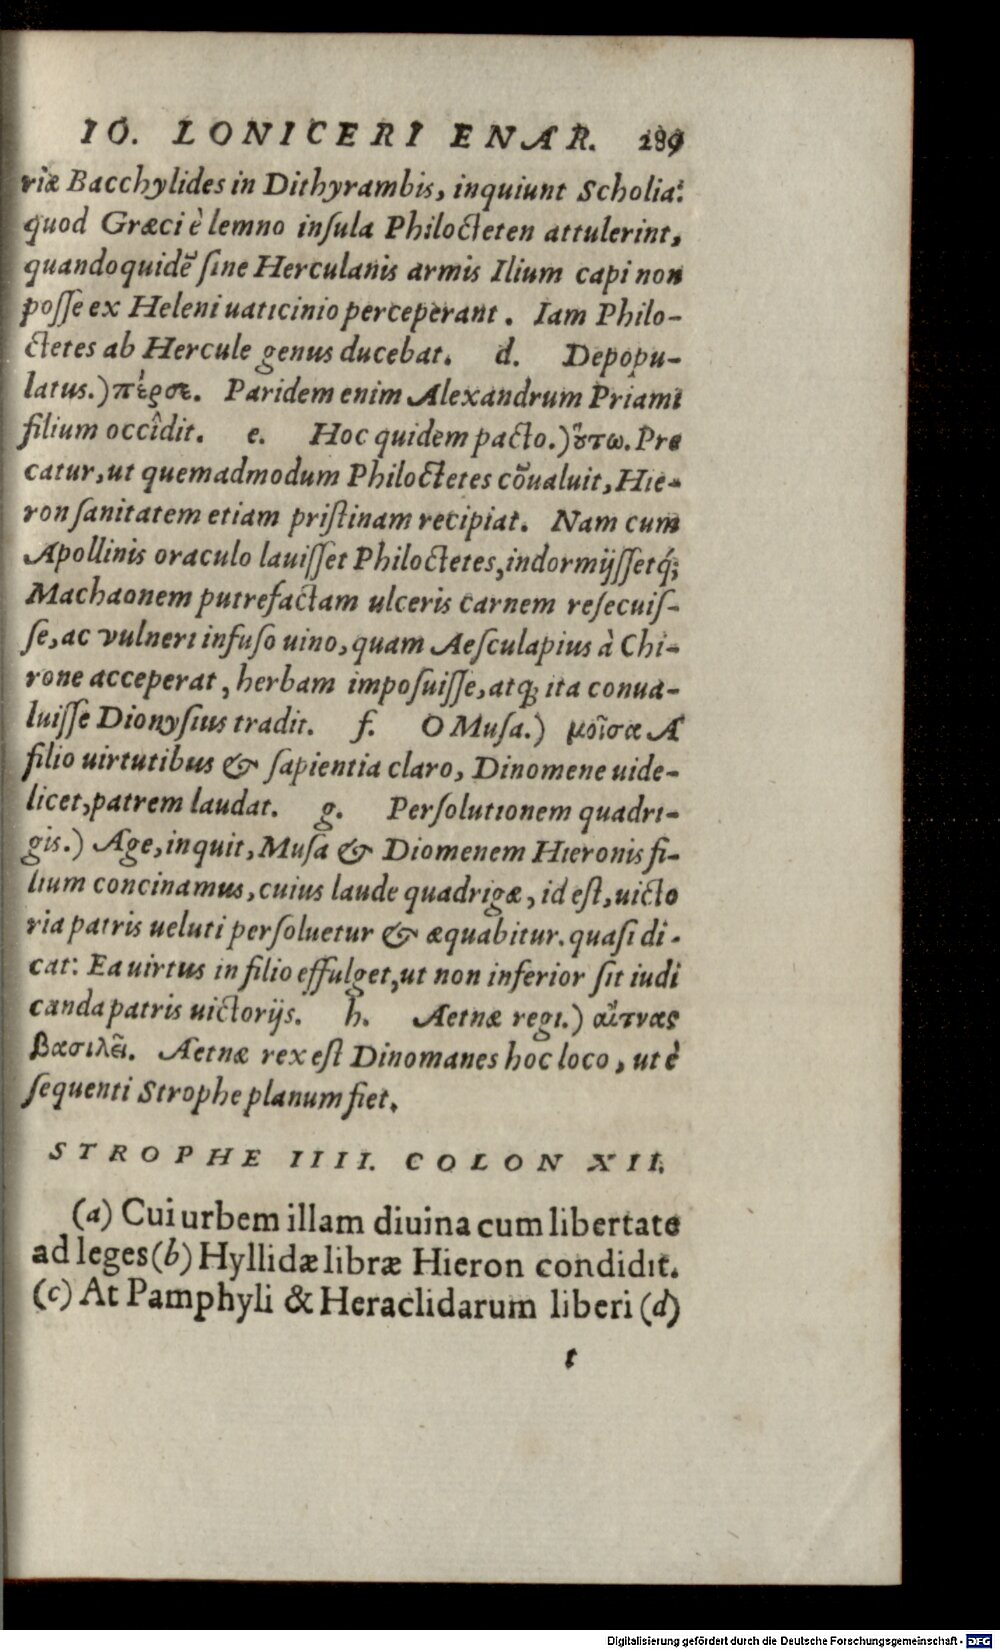 IO. LONICERI ENAR. 289
riæ Bacchylides in Dithyrambis, inquiunt Scholia:
quod Græci è lemno inſula Philocteten attulerint,
quandoquidẽ ſine Herculanis armis Ilium capi non
poſſe ex Heleni uaticinio perceperant. Iam Philo-
ctetes ab Hercule genus ducebat. d. Depopu-
latus.) πέρσε. Paridem enim Alexandrum Priami
filium occîdit. e. Hoc quidem pacto.) ὅτω. Pre
catur, ut quemadmodum Philoctetes cõualuit, Hie-
ron ſanitatem etiam priſtinam recipiat. Nam cum
Apollinis oraculo lauiſſet Philoctetes, indormijſſetq́;
Machaonem putrefactam ulceris carnem reſecuiſ-
ſe, ac vulneri infuſo uino, quam Aeſculapius à Chi-
rone acceperat, herbam impoſuiſſe, atq; ita conua-
luiſſe Dionyſius tradit. f. O Muſa.) μοῖσα A
filio uirtutibus & ſapientia claro, Dinomene uide-
licet, patrem laudat. g. Perſolutionem quadri-
gis.) Age, inquit, Muſa & Diomenem Hieronis fi-
lium concinamus, cuius laude quadrigæ, id eſt, uicto
ria patris ueluti perſoluetur & æquabitur. quaſi di-
cat: Ea uirtus in filio effulget, ut non inferior ſit iudi
canda patris uictorijs. h. Aetnæ regi.) αἴτνας
βασιλεῖ. Aetnæ rex eſt Dinomanes hoc loco, ut è
ſequenti Strophe planum fiet.
STROPHE IIII. COLON XII.
(a) Cui urbem illam diuina cum libertate
ad leges (b) Hyllidæ libræ Hieron condidit.
(c) At Pamphyli & Heraclidarum liberi (d)
t
Digitalisierung gefördert durch die Deutsche Forschungsgemeinschaft - DFG